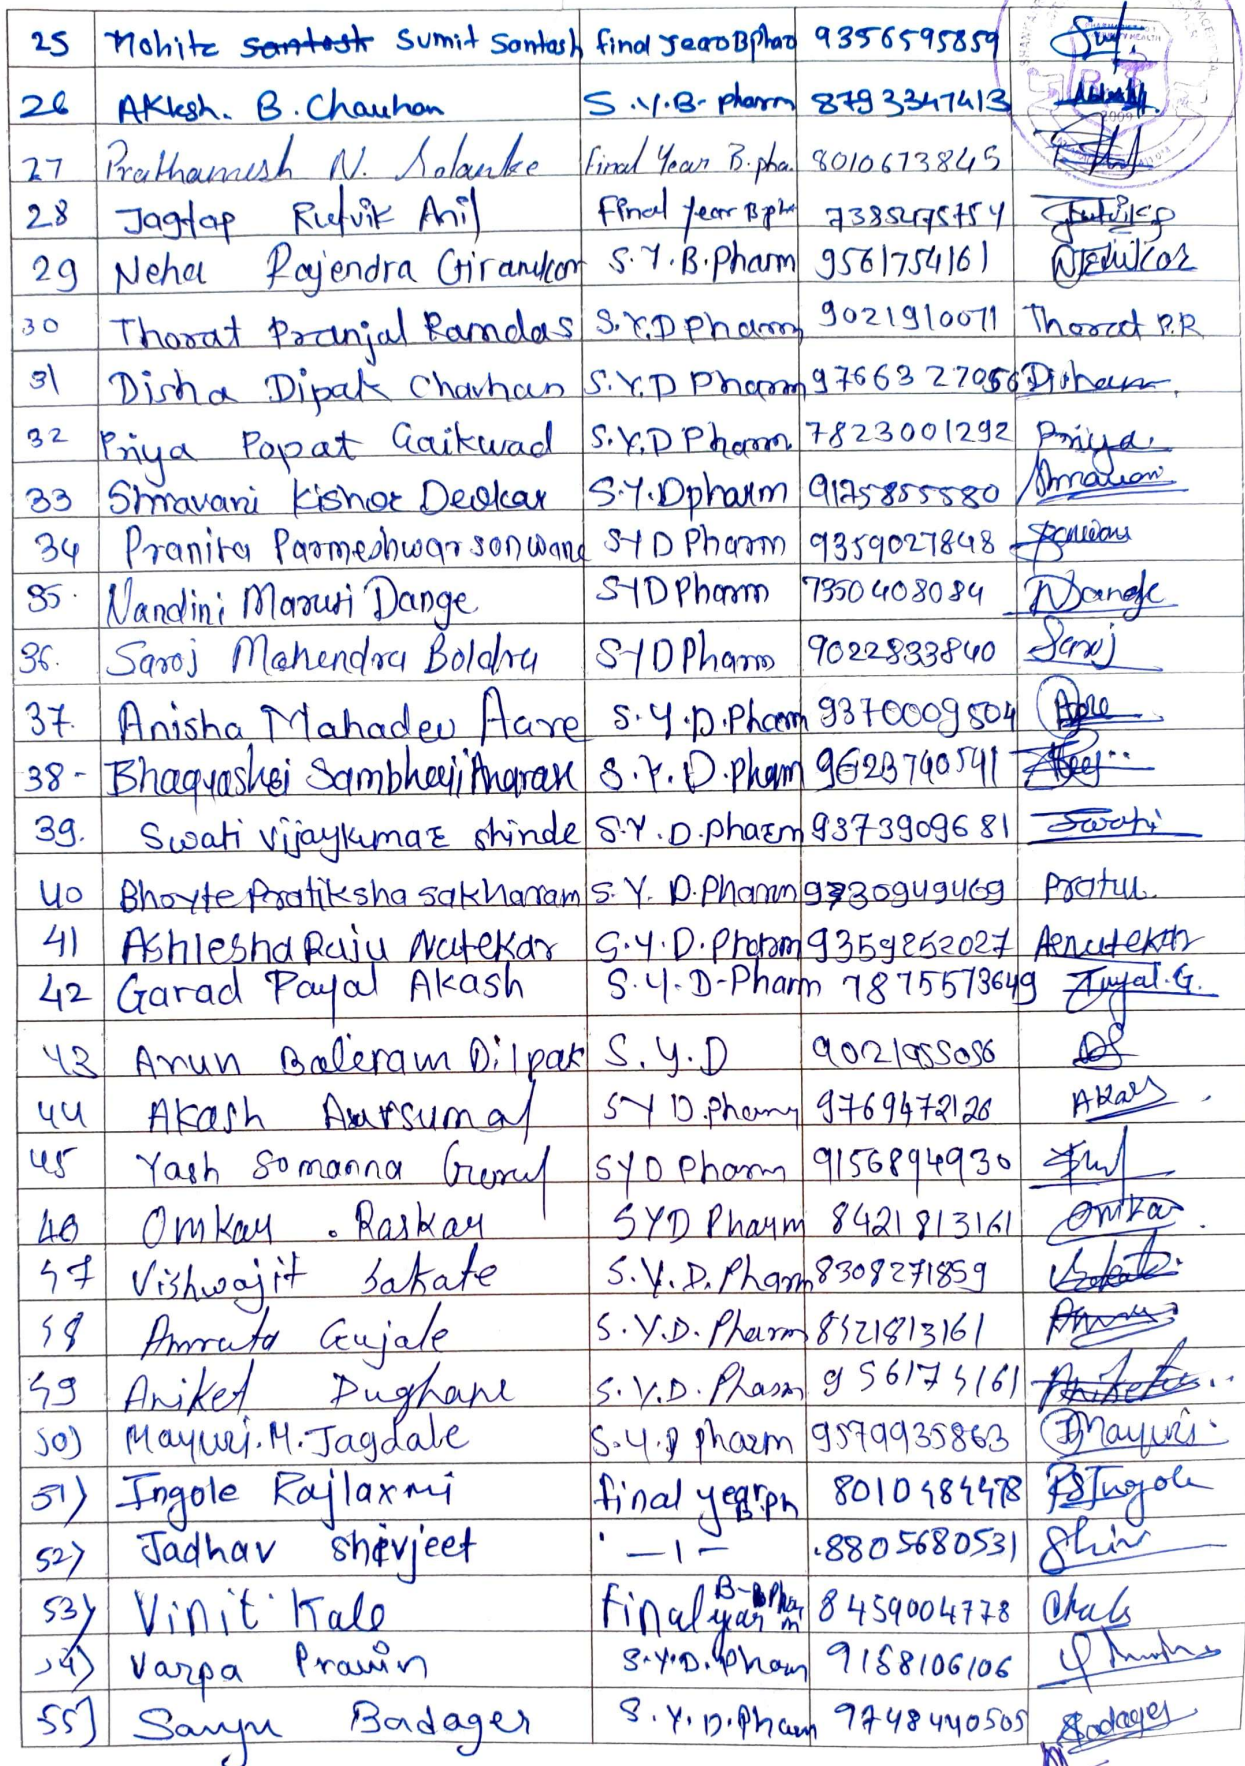 25 Mohite santosh Sumit Santosh final year B phar 9356595859
26 AKksh. B. Chauhan S.Y.B- pharm 8793347413
27 Prathamesh N. Solanke final Year B.pha. 8010673845
28 Jagtap Rutvik Anil final year B pha
29 Neha Rajendra Giramkar S.Y.B.Pharm 9561754161
30 Thorat Pranjal Ramdas S.Y.D pharm 9021910071 Thorat P.R
31 Disha Dipak Chavhan S.Y.D Pharm 9766327056
32 Priya Popat Gaikwad S.Y.D Pharm. 7823001292 Priya.
33 Shravani Kishor Deokar S.Y.Dpharm 9175855580
34 Pranita Parmeshwar sonwane SYD Pharm 9359027848
35. Nandini Maruti Dange SYD Pharm 7350408084 NDange
36. Saroj Mahendra Boldra SYD Pharm 9022833840 Saroj
37. Anisha Mahadev Aare S.Y.D.Pharm 9370009504
38- S.Y.D.pham 9623740541
39. Swati Vijaykumar shinde S.Y.D.pharm 9373909681 Swati
40 Bhoyte Pratiksha sakharam S.Y. D.Pharm 9730949469
41 Ashlesha Raju Natekar S.Y.D.Pharm 9359252027
42 Garad Payal Akash S.Y.D-Pharm 7875573649 Payal.G.
43 Arun Baleram Dilpak S.Y.D 9021955056
44 Akash SYD.pharm 9769472126 Akash
45 Yash Somanna Gurav SYD Pharm 9156894930
46 Omkar . Raskar SYD Pharm 8421813161 Omkar
47 Vishwajit Sakate S.Y.D.Pharm 8308271859
48 Amruta Gujale S.Y.D.Pharm 8421813161
49 Aniket Dughane S.Y.D.Pharm 956174161
50) Mayuri.M.Jagdale S.Y.D pharm 9579935863 Mayuri.
51) Ingole Rajlaxmi final year B.ph 8010484478 RSIngole
52) Jadhav shivjeet — 1 — .8805680531 Shiv
53) Vinit Kale final year B-Pharm 8459004778
54) Varpa Pravin S.Y.D.Pham 9158106106
55) Badager S.Y.D.Pham 9748440505 Badager